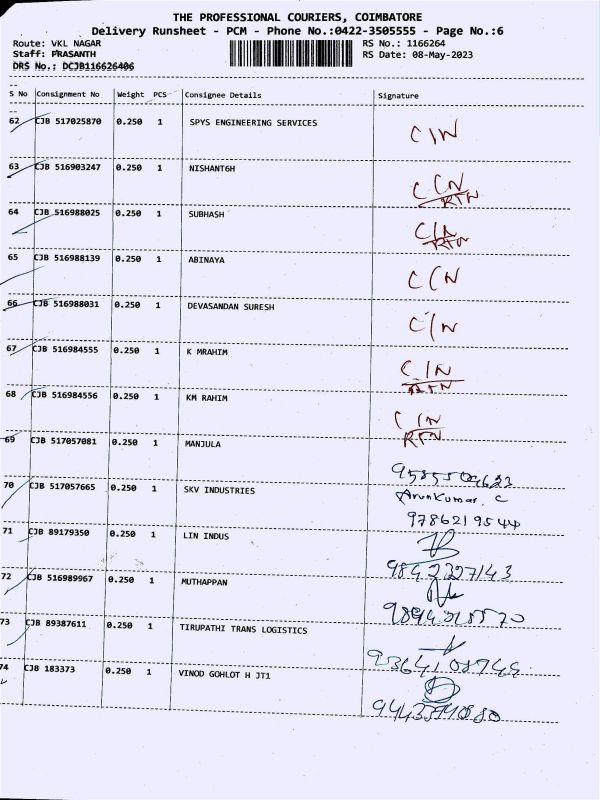 THE PROFESSIONAL COURIERS, COIMBATORE
Delivery Runsheet - PCM - Phone No.:0422-3505555 - Page No.:6
Route: VKL NAGAR RS No.: 1166264
Staff: PRASANTH RS Date: 08-May-2023
DRS No.: DCJB116626406
S No Consignment No Weight PCS Consignee Details Signature
62 CJB 517025870 0.250 1 SPYS ENGINEERING SERVICES C/N
63 CJB 516903247 0.250 1 NISHANT6H C(N
RTN
64 CJB 516988025 0.250 1 SUBHASH C/N
RTN
65 CJB 516988139 0.250 1 ABINAYA C(N
66 CJB 516988031 0.250 1 DEVASANDAN SURESH C/N
67 CJB 516984555 0.250 1 K MRAHIM C/N
RTN
68 CJB 516984556 0.250 1 KM RAHIM C/N
RTN
69 CJB 517057081 0.250 1 MANJULA
70 CJB 517057665 0.250 1 SKV INDUSTRIES ArunKumar. C
9786219544
71 CJB 89179350 0.250 1 LIN INDUS
9842327143
72 CJB 516989967 0.250 1 MUTHAPPAN
73 CJB 89387611 0.250 1 TIRUPATHI TRANS LOGISTICS
74 CJB 183373 0.250 1 VINOD GOHLOT H JT1